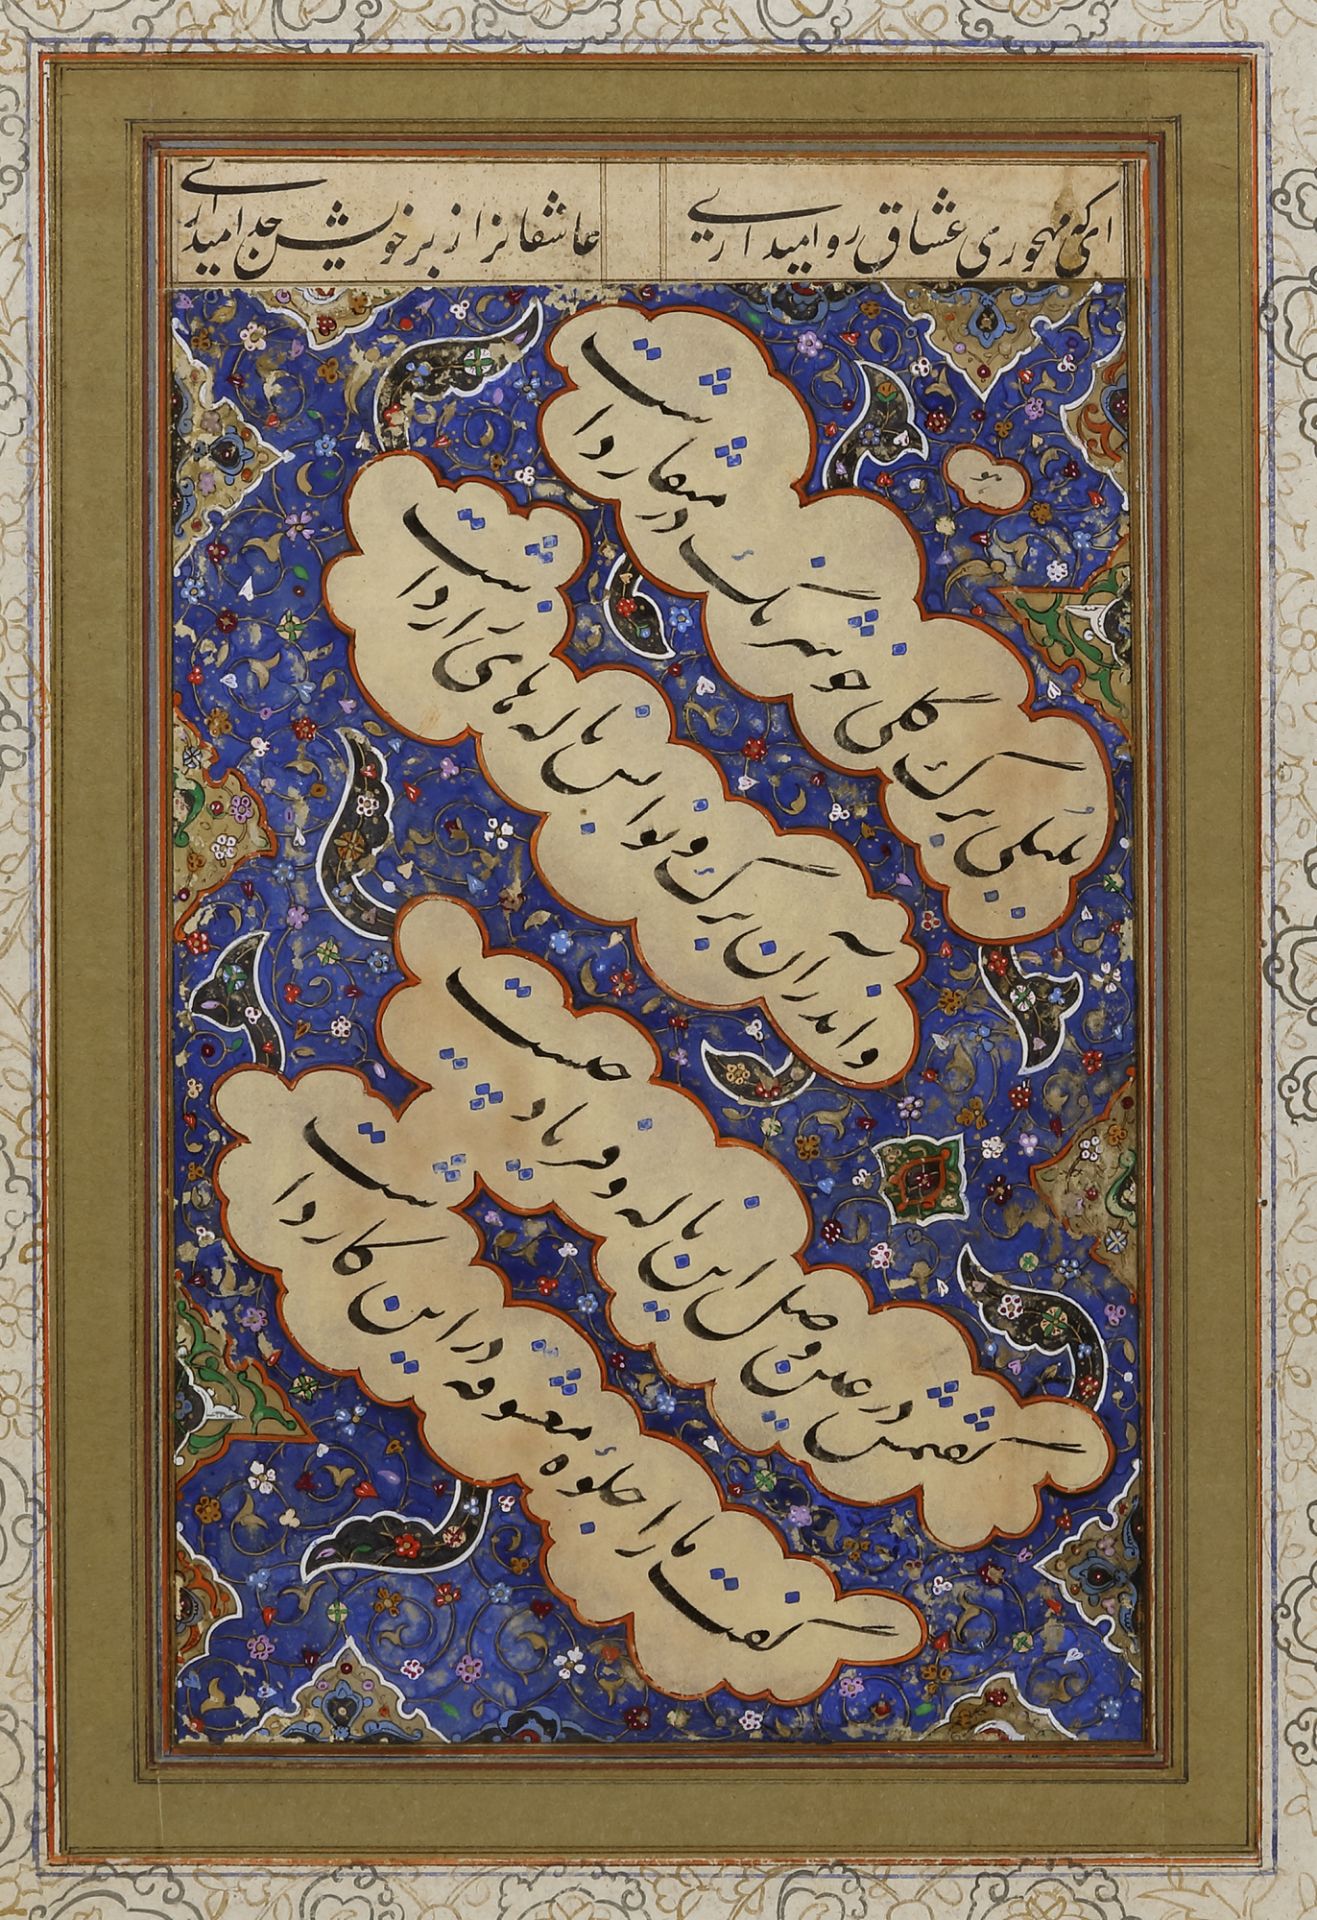 ای که مهجوری عشاق روا میداری
عاشقانرا ز بر خویش جدا میداری
هو
بلبلی برگ گلی خوشرنگ در منقار داشت
واندر آن برگ و نوا بس ناله های زار داشت
گفتمش در عین وصل این ناله و فریاد چیست
گفت ما را جلوهٔ معشوقه در این کار داشت